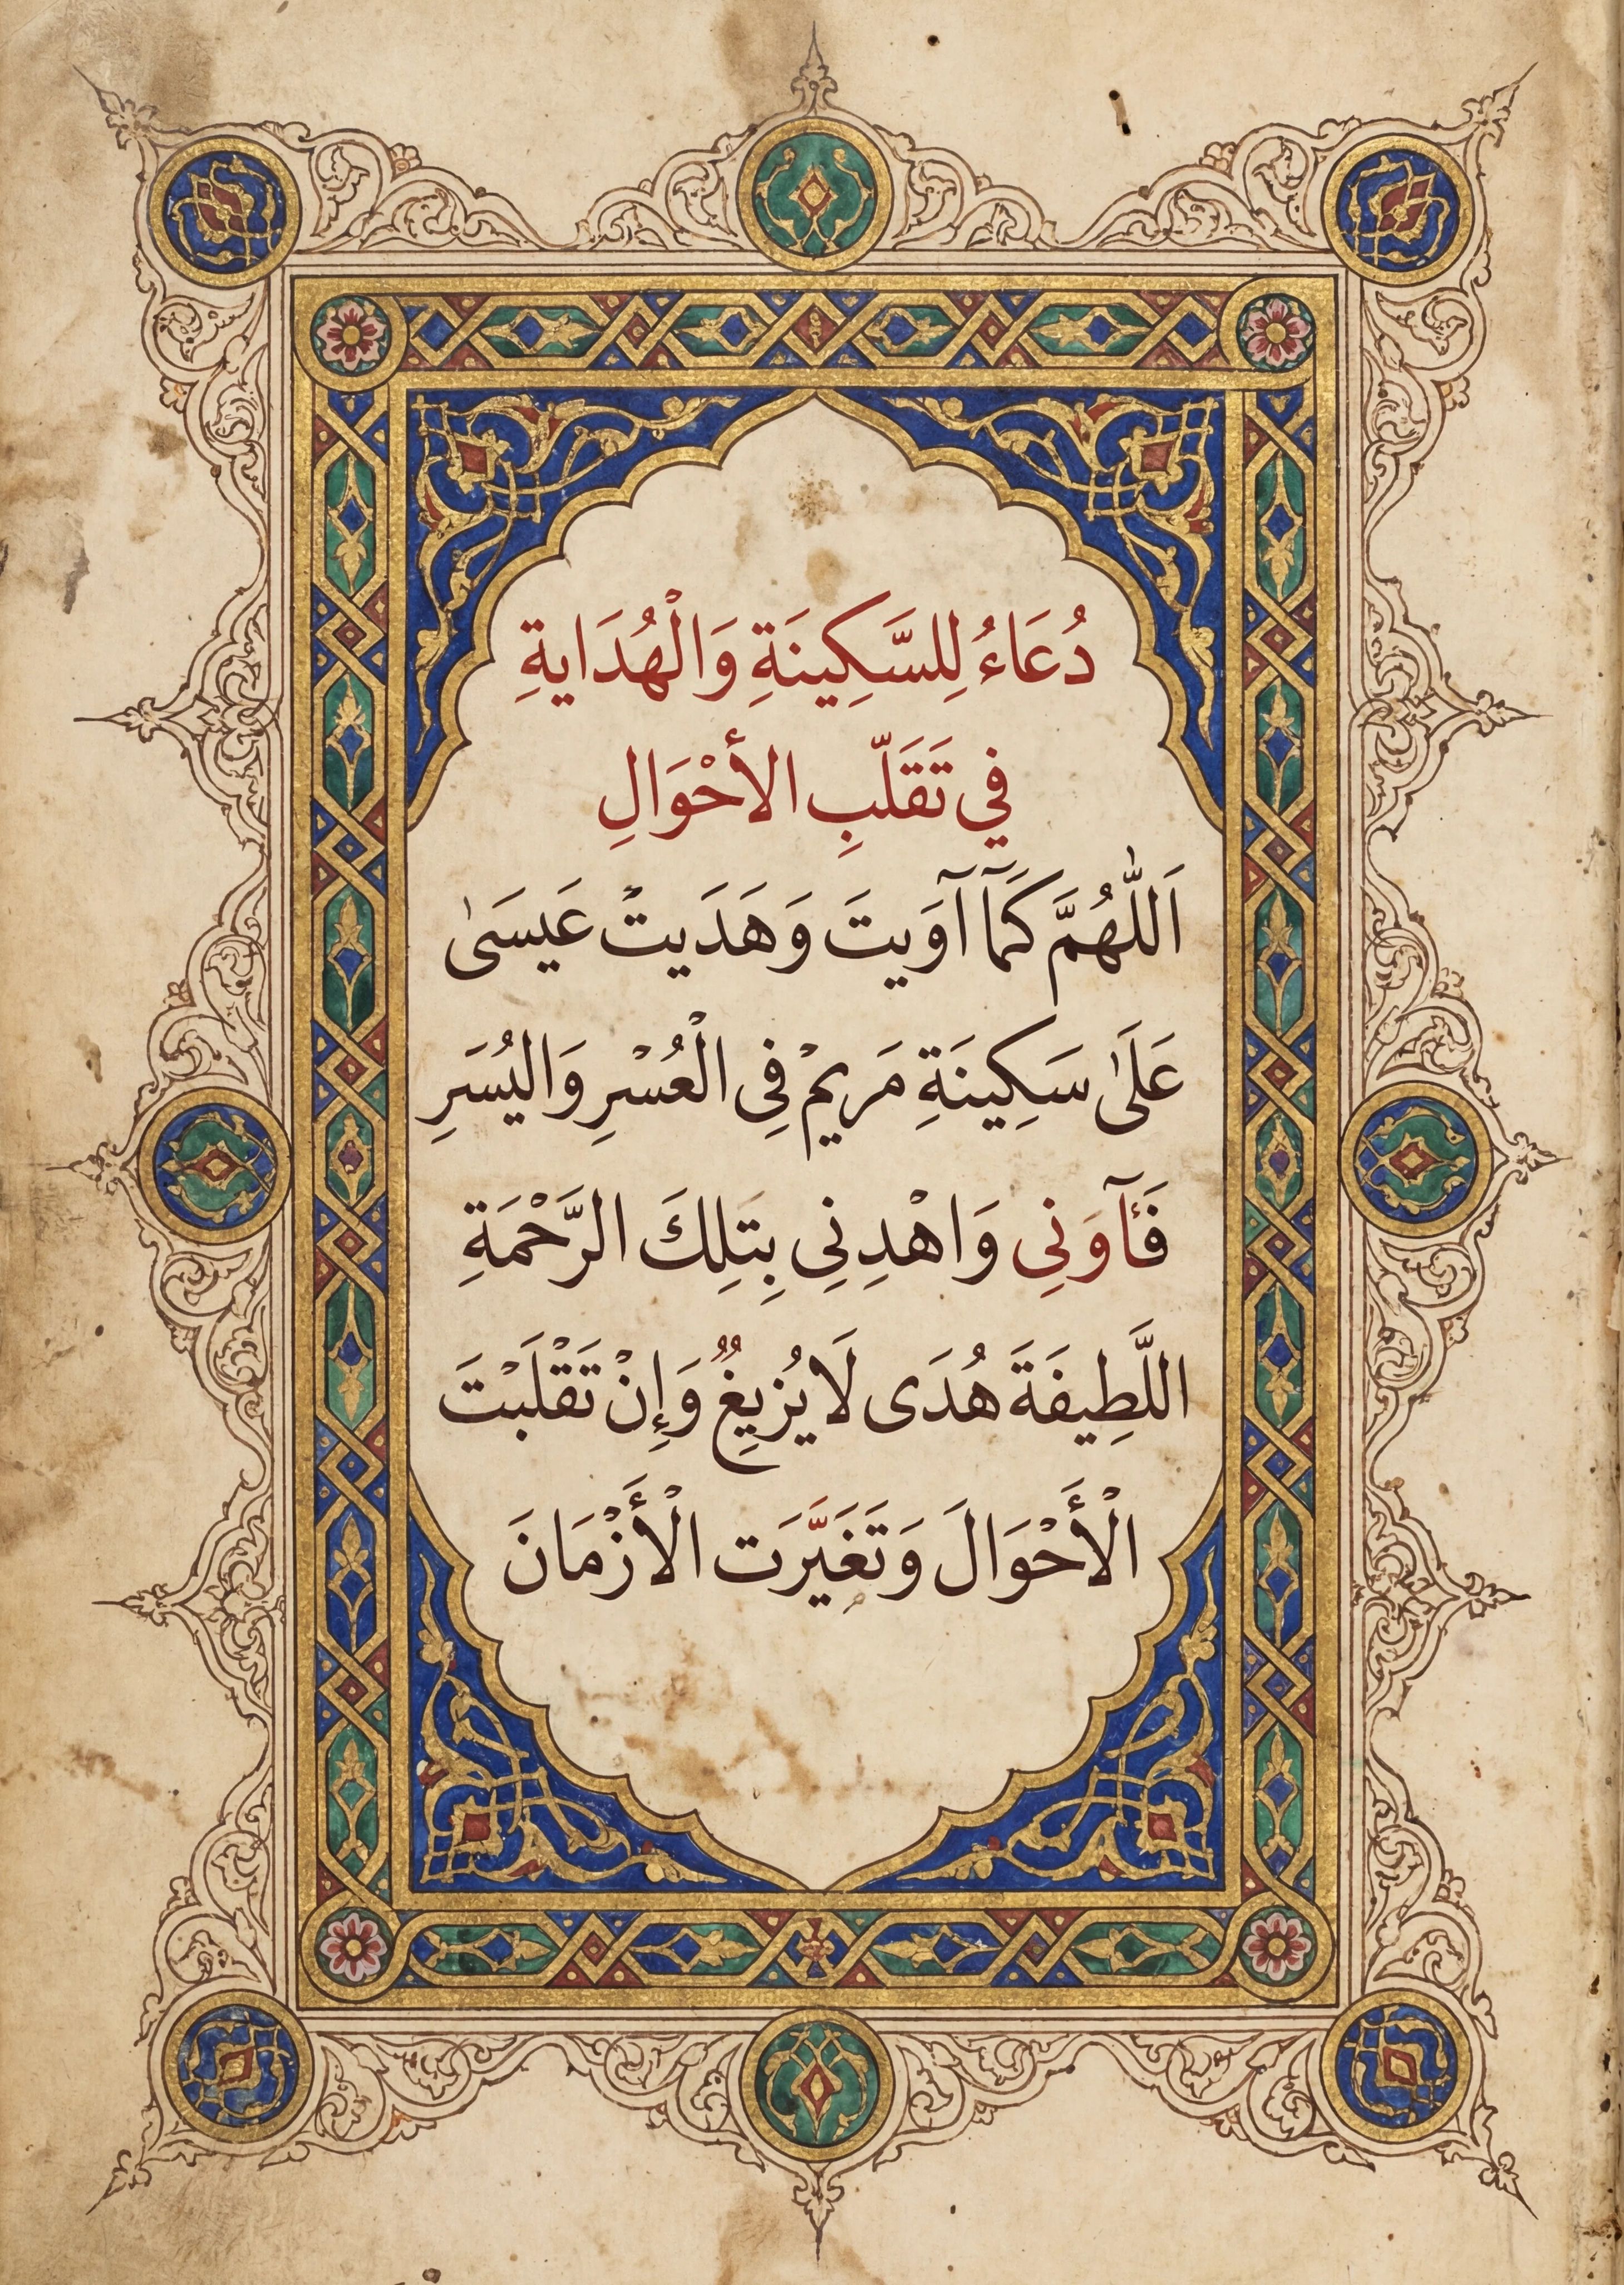 دُعَاءُ لِلسَّكِينَةِ وَالْهُدَايةِ
في تَقَلّبِ الأحْوَالِ
اَللّٰهُمَّ كَمَآ آوَيتَ وَهَدَيتً عَيسَىٰ
عَلَىٰ سَكِينَةِ مَريمْ فِي الْعُسْرِ وَاليُسَرِ
فَـَٔآوَنِي وَاهْدِنِي بِتَلِكَ الرَّحْمَةِ
اللَّطِيفَةَ هُدَى لَا يُزِيغُ وَإِنْ تَقْلَبْتَ
الْأَحْوَالَ وَتَغَيَّرَت الْأَزْمَانَ